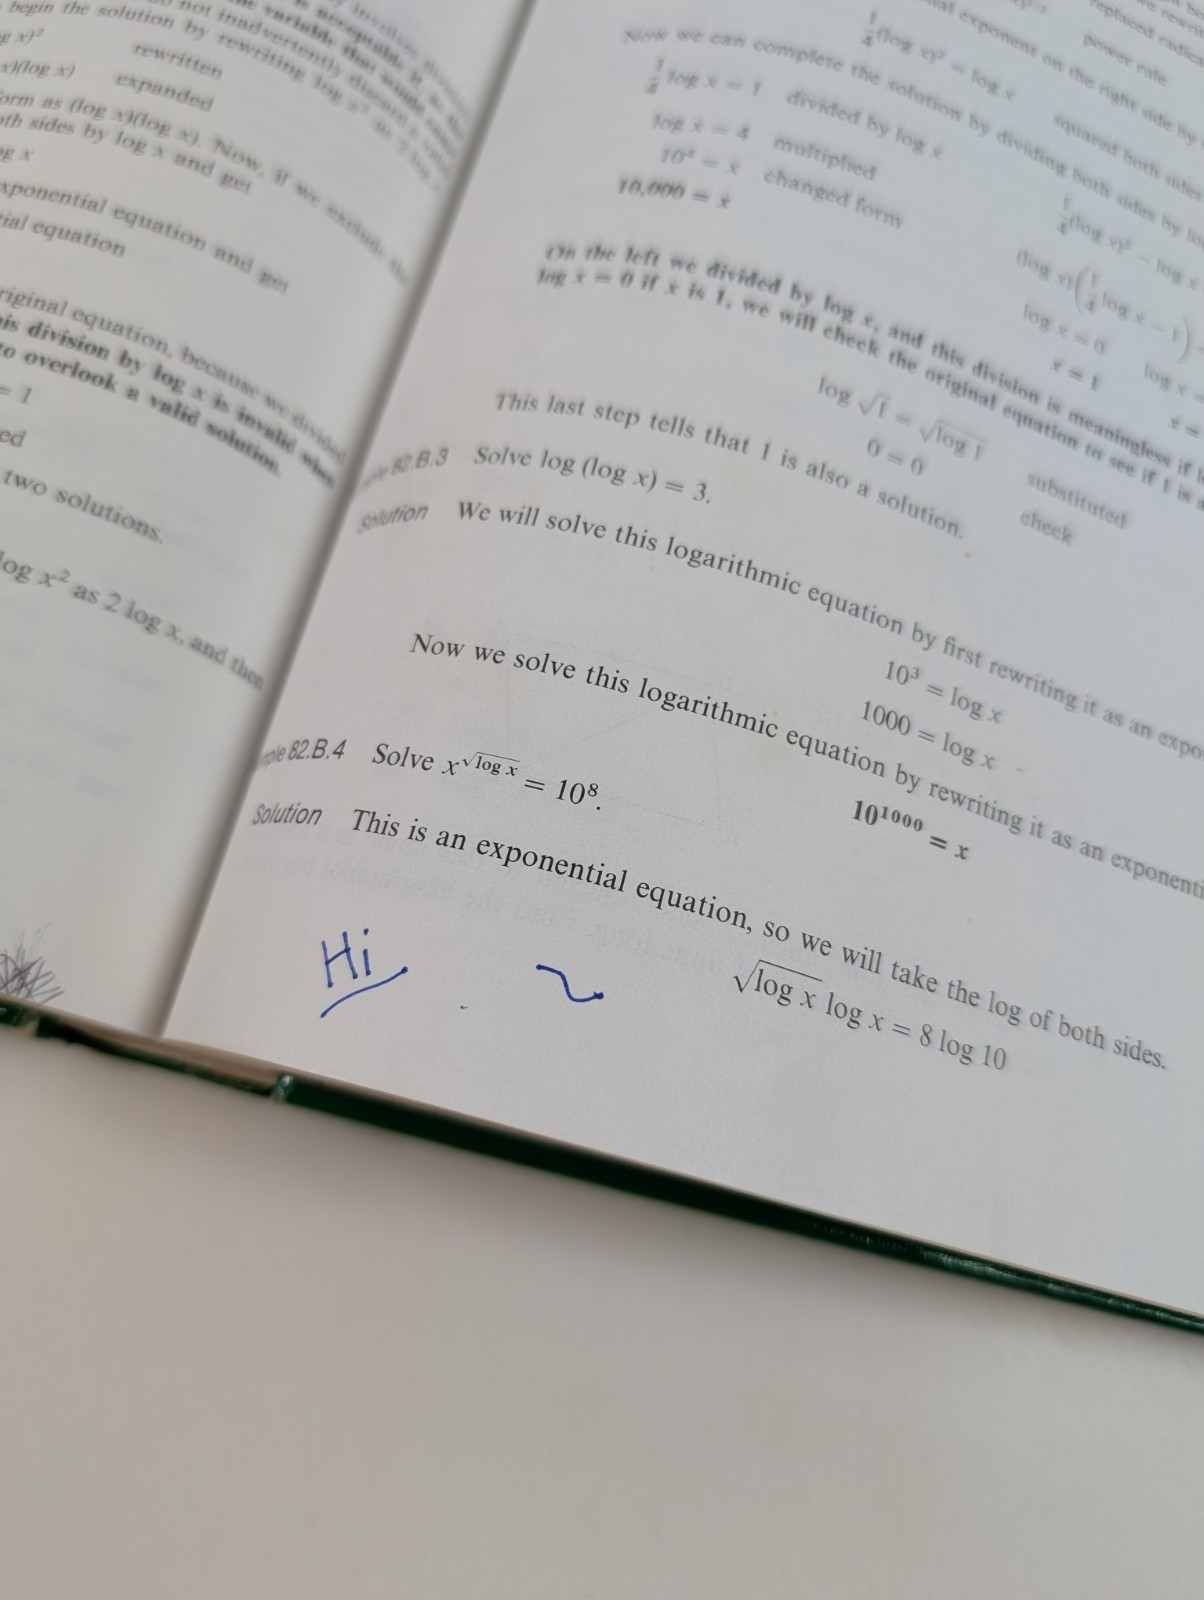 begin the solution by rewriting log x² as 2 log x
rewritten
x)(log x)
expanded
form as (log x)(log x). Now, if we exclude the
both sides by log x and get
exponential equation and get
tial equation
riginal equation, because we divided
his division by log x is invalid when
to overlook a valid solution.
= 1
ed
two solutions.
log x² as 2 log x, and then
1/4(log x)² = log x
squared both sides
power rule
Now we can complete the solution by dividing both sides by
1/4 log x = 1 divided by log x
log x = 4 multiplied
10⁴ = x changed form
10,000 = x
1/4(log x)² - log x
(log x)(1/4 log x - 1)
log x = 0 log x =
x = 1 x =
On the left we divided by log x, and this division is meaningless if
log x = 0 if x is 1, we will check the original equation to see if 1 is a
log √1 = √log 1 substituted
0 = 0 check
This last step tells that 1 is also a solution.
82.B.3 Solve log (log x) = 3.
Solution We will solve this logarithmic equation by first rewriting it as an expo
10³ = log x
1000 = log x
Now we solve this logarithmic equation by rewriting it as an exponenti
10¹⁰⁰⁰ = x
mple 82.B.4 Solve x^√log x = 10⁸.
Solution This is an exponential equation, so we will take the log of both sides.
√log x log x = 8 log 10
Hi